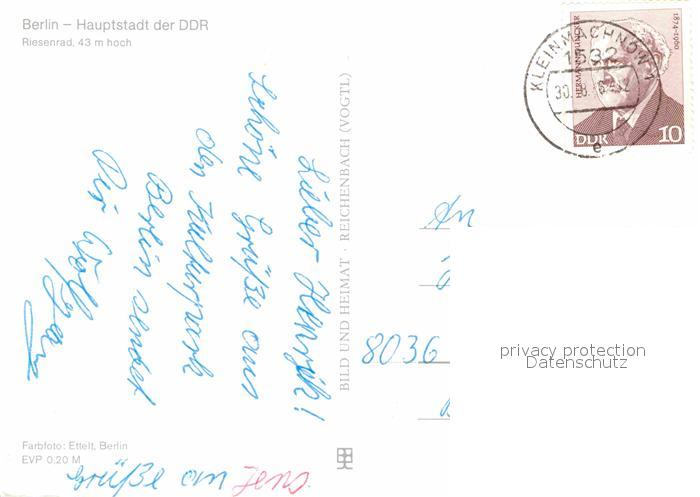 Berlin – Hauptstadt der DDR
Riesenrad, 43 m hoch
KLEINMACHNOW 1
1532
30.
e
HERMANN DUNCKER
1874-1960
DDR
10
Lieber Henryk!
Schöne Grüße aus
den Kulturpark
Berlin sendet
Dir Wolfgang
BILD UND HEIMAT · REICHENBACH (VOGTL)
An
8036
privacy protection
Datenschutz
Farbfoto: Ettelt, Berlin
EVP 0.20 M
Grüße an Jens.